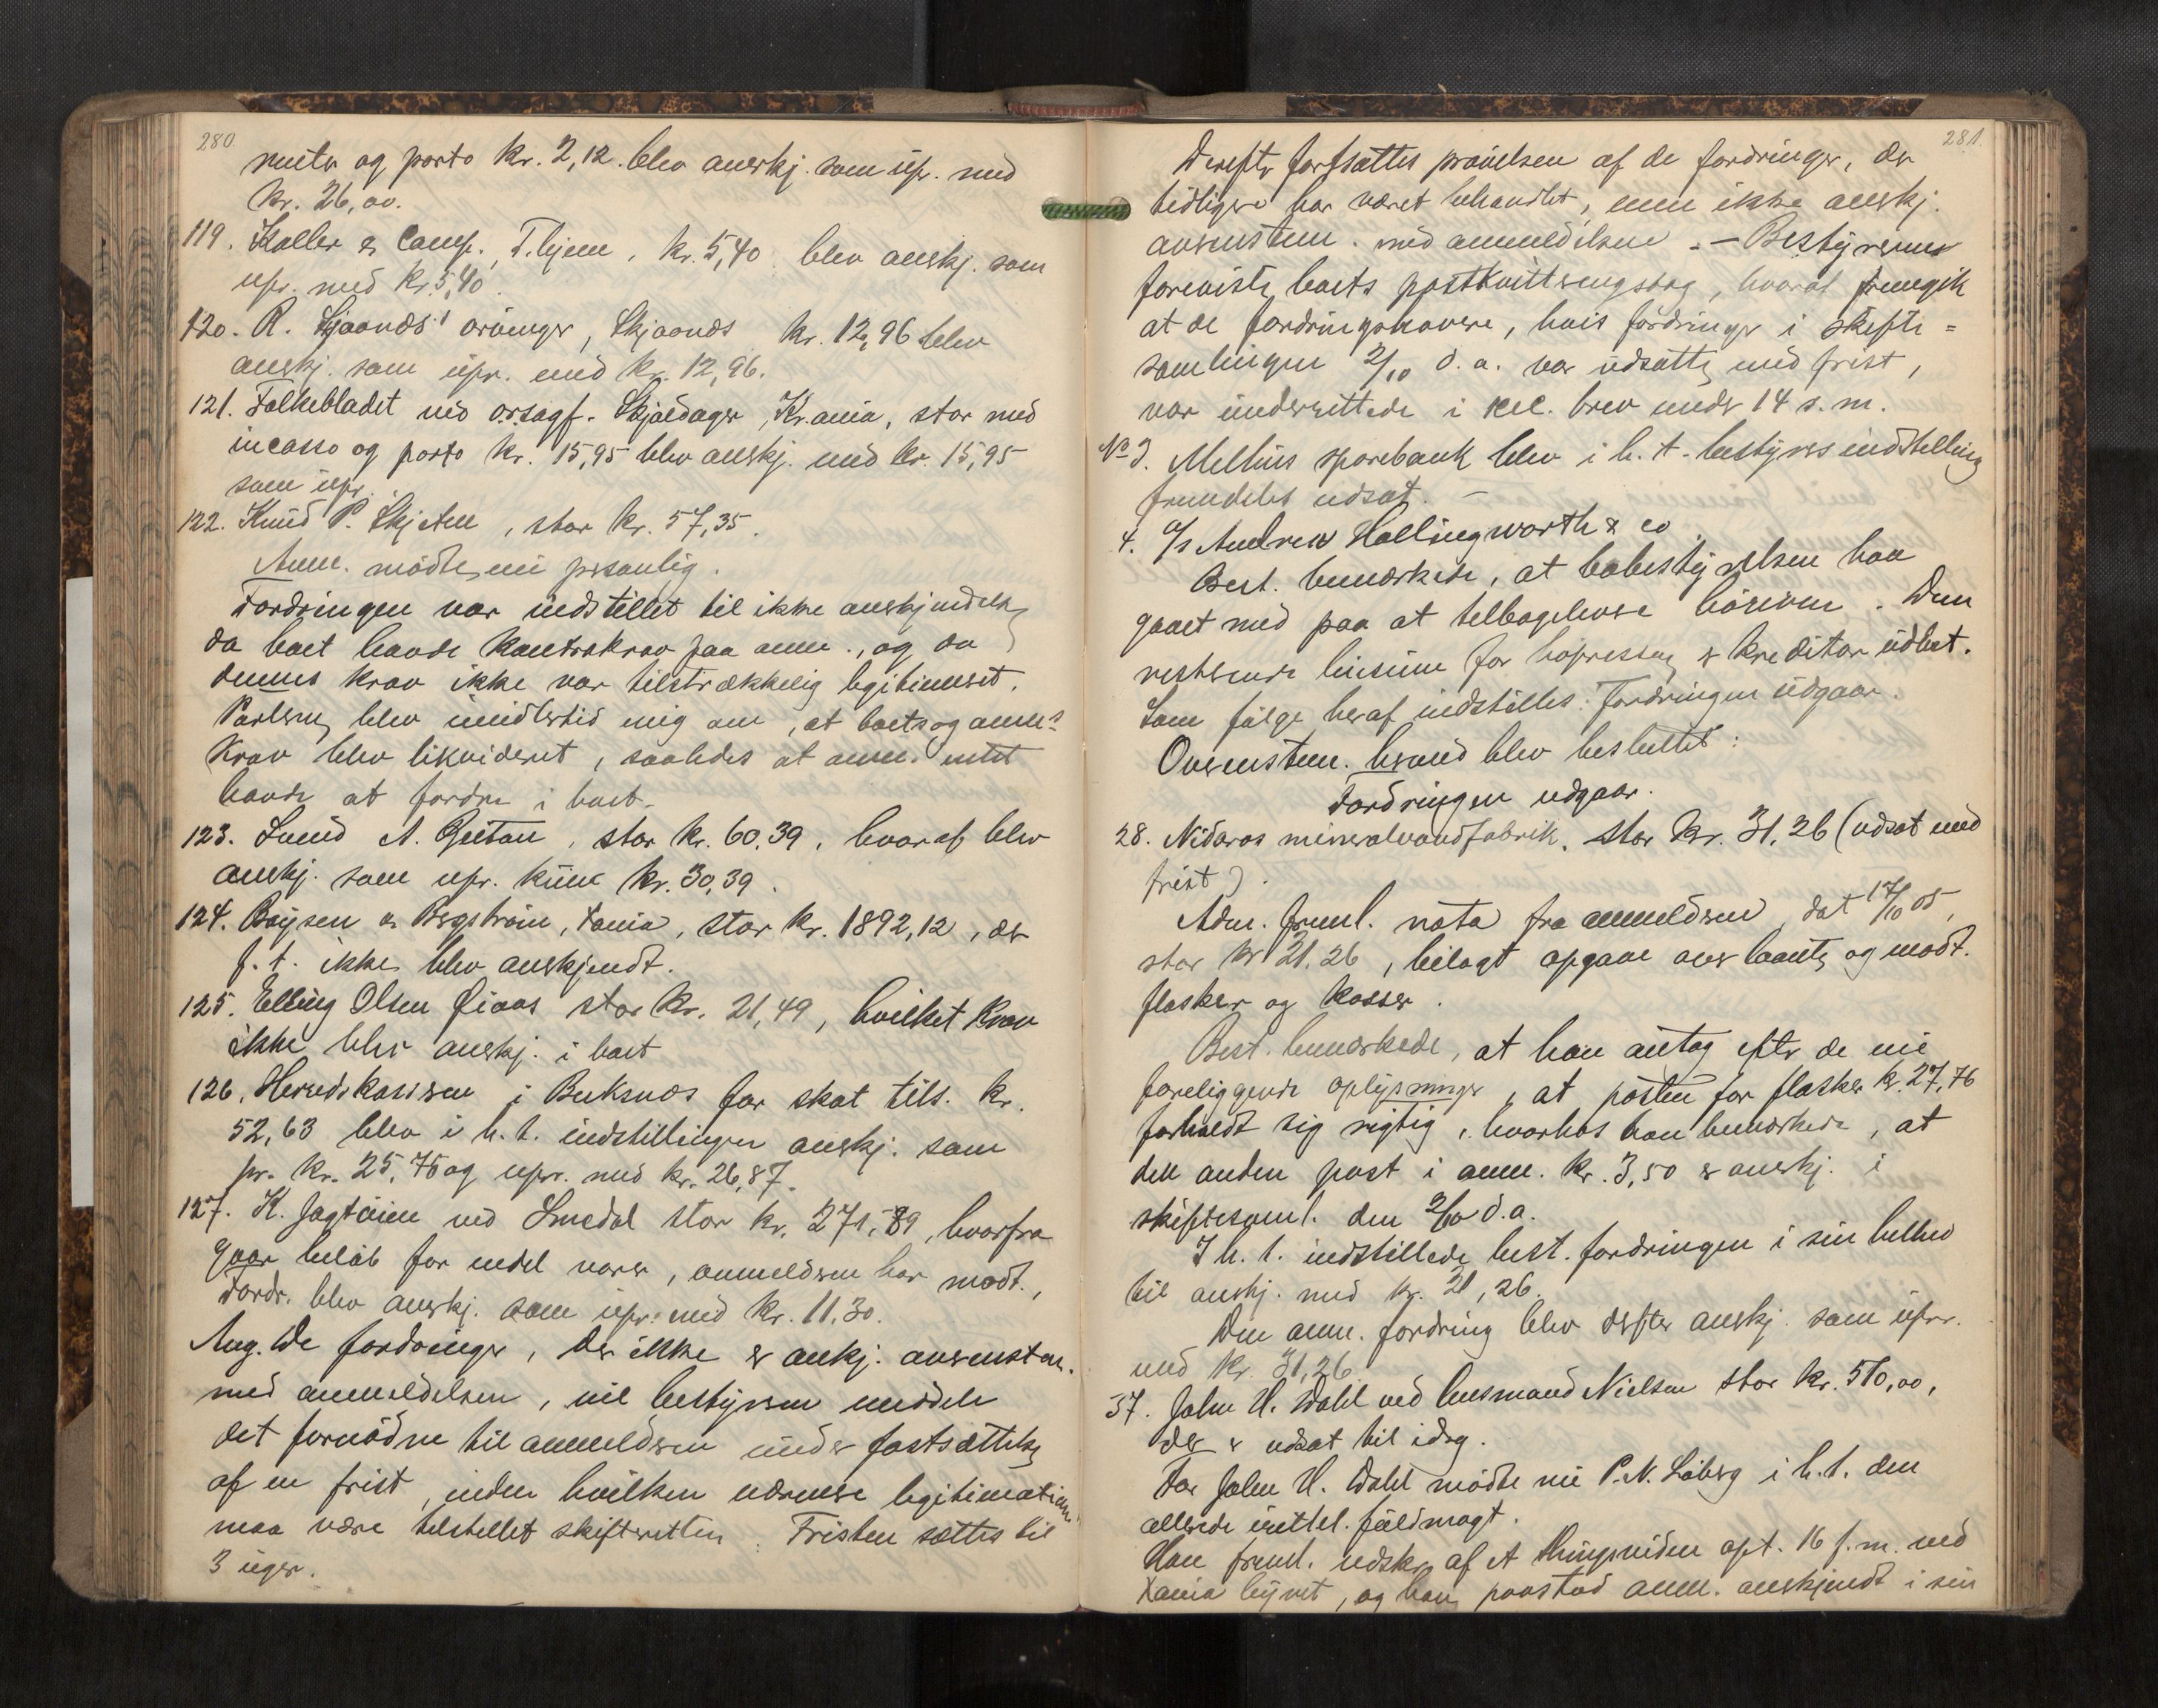 280.
renter og porto kr. 2,12. blev anerkj. som upr. med
kr. 26,00.
119. Koller & Comp., T.hjem, kr. 5,40 blev anerkj. som
upr. med kr. 5,40.
120. R. Skjaanæs' arvinger, Skjaanæs kr. 12,96 blev
anerkj. som upr. med kr. 12,96.
121. Folkebladet ved o.r.sagf. Skjældager, Kr.ania, stor med
incasso og porto kr. 15,95 blev anerkj. med kr. 15,95
som upr.
122. Knud P. Skjeten, stor kr. 57,35.
Anm. mødte nu personlig.
Fordringen var indstillet til ikke anerkjendelse,
da boet havde kontrakrav paa anm., og da
dennes krav ikke var tilstrækkelig legitimeret.
Parterne blev imidlertid enig om, at boets og anm.s
krav blev likvideret, saaledes at anm. intet
havde at fordre i boet.
123. Lund A. , stor kr. 60,39, hvoraf blev
anerkj. som upr. kun kr. 30,39.
124. Boysen & Bergstrøm, Xania, stor kr. 1892,12, der
f. t. ikke blev anerkjendt.
125. Elling Olsen Øiaas stor kr. 21,49, hvilket krav
ikke blev anerkj. i boet
126. Herredskassen i Buksnæs for skat tils. kr.
52,63 blev i h. t. indstillingen anerkj. som
pr. kr. 25,76 og upr. med kr. 26,87.
127. K. Jagtøien ved Smedal stor kr. 271,89, hvorfra
gaar beløb for endel varer, anmelderen har modt.,
Fordr. blev anerkj. som upr. med kr. 11.30.
Ang. de fordringer, der ikke er ankj. overenstem.
med anmeldelsen, vil bestyreren meddele
det fornødne til anmelderen under fastsættelse
af en frist, inden hvilken nærmere legitimation
maa være tilstillet skifteretten. Fristen sættes til
3 uger.
281.
Derefter fortsattes prøvelsen af de fordringer, der
tidligere har været behandlet, men ikke anerkj.
overenstem. med anmeldelsene. — Bestyreren
foreviste boets postkvitteringsbog, hvoraf fremgik
at de fordringshavere, hvis fordringer i skifte=
samlingen 2/10 d. a. var udsatte med frist,
var underrettede i rec. brev under 14 s. m.
No 3. Melhus sparebank blev i h. t. bestyres indstilling
fremdeles udsat. —
4. A/S Andrew Hollingworth & co
Best. bemærkede, at bobestyrelsen har
gaaet med paa at tilbagelevere . Den
resterende leiesum for høipressen er kreditor udbet.
Som følge heraf indstilles: Fordringen udgaar.
Overenstem. hermed blev besluttet:
Fordringen udgaar.
28. Nidaros mineralvandfabrik, stor kr. 31,26 (udsat med
frist).
Adm. freml. nota fra anmelderen, dat 17/10 05,
stor kr 21.26, bilagt opgave over leverte og modt.
flasker og kasser.
Best. bemærkede, at han antog efter de nu
foreliggende oplysninger, at posten for flasker kr. 27,76
forholdt sig rigtig, hvorhos han bemærkede, at
den anden post i anm. kr. 3,50 er anerkj. i
skiftesaml. den 2/10 d. a.
I h. t. indstillede best. fordringen i sin helhed
til anerkj. med kr. 31,26.
Den anm. fordring blev derfter anerkj. som upr.
med kr. 31,26.
37. John H. Dahl ved husmand Nielsen stor kr. 570,00,
der er udsat til idag.
For John H. Dahl mødte nu P. N. Løberg i h. t. den
allerede irettel. fuldmagt.
Han freml. udskr. af A Thingviden opt. 16 f. m. ved
Xania byret, og han paastod anm. anerkjendt i sin